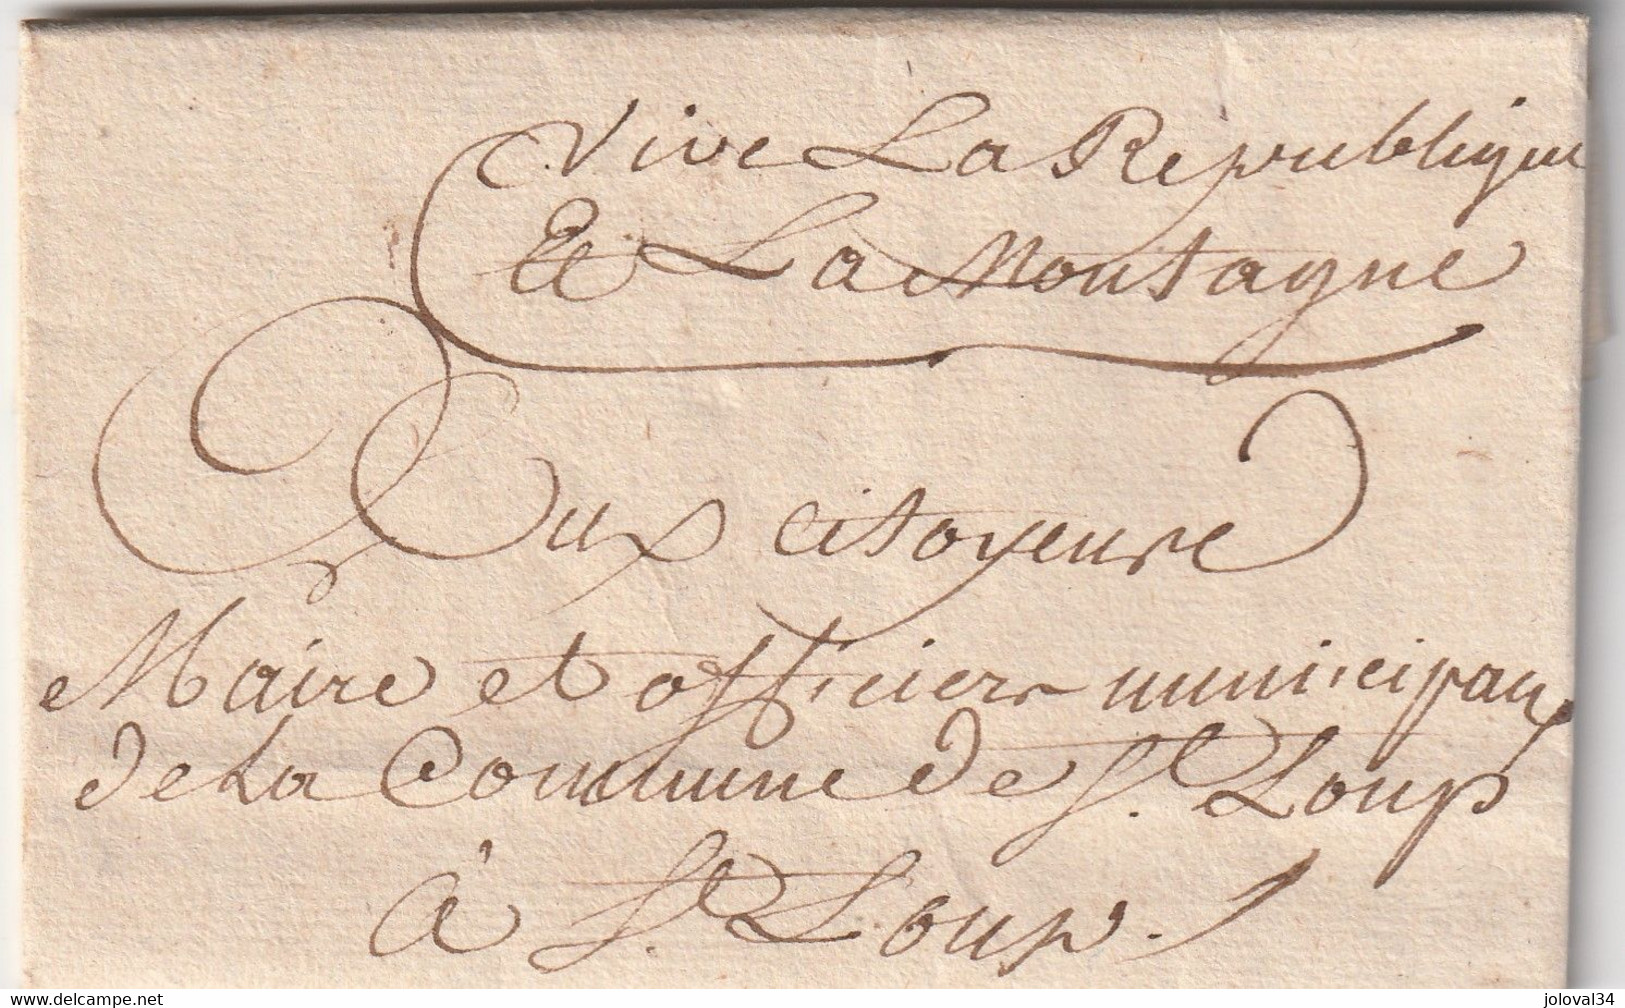 Vive La Republique
Et La Montagne
Aux citoyens
Maire et officiers municipaux
de La Commune de St. Loup
à St. Loup.
www.delcampe.net
joloval34